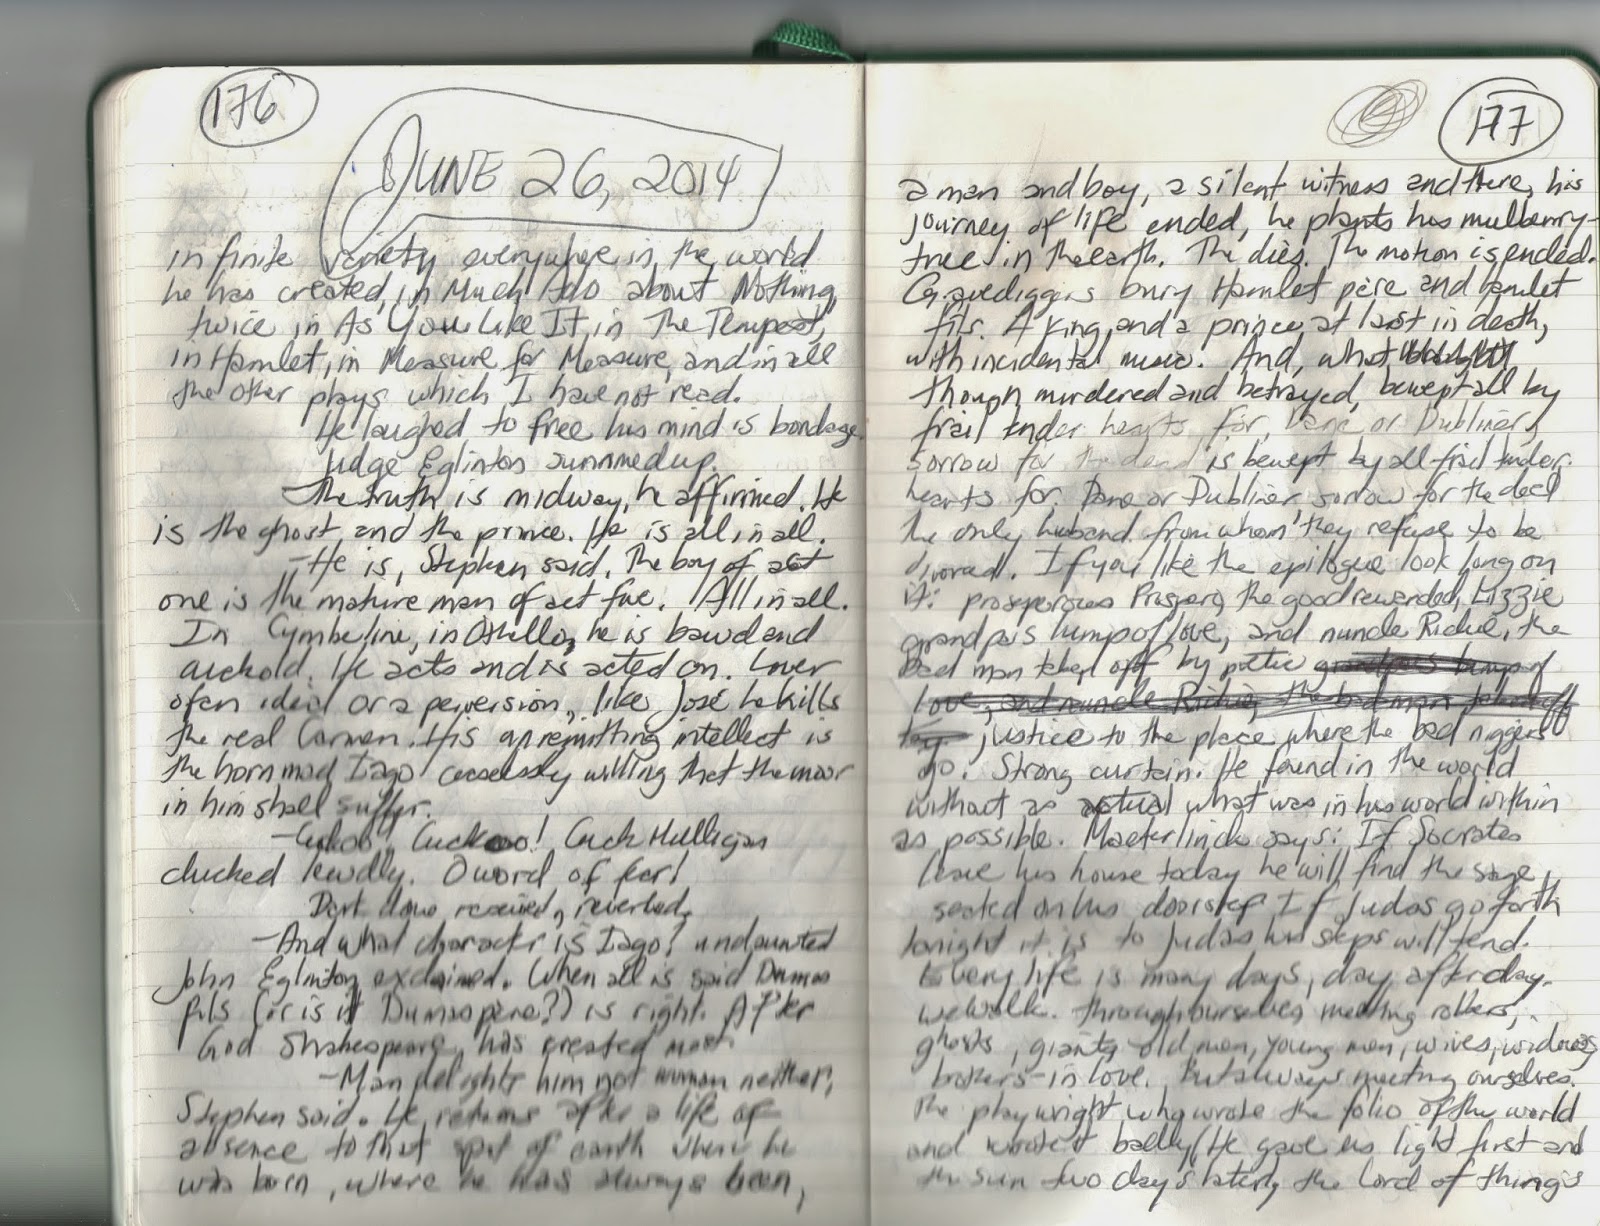 176
JUNE 26, 2014
infinite variety everywhere in the world
he has created, in Much Ado about Nothing,
twice in As You Like It, in The Tempest,
in Hamlet, in Measure for Measure, and in all
the other plays which I have not read.
He laughed to free his mind is bondage.
Judge Eglinton summed up.
-The truth is midway, he affirmed. He
is the ghost and the prince. He is all in all.
-He is, Stephen said. The boy of act
one is the mature man of act five. All in all.
In Cymbeline, in Othello, he is bawd and
cuckold. He acts and is acted on. Lover
of an ideal or a perversion, like José he kills
the real Carmen. His unremitting intellect is
the hornmad Iago ceaselessly willing that the moor
in him shall suffer.
-Cuckoo! Cuckoo! Cuck Mulligan
clucked lewdly. O word of fear!
Dark dome received, reverbed.
-And what character is Iago! undaunted
John Eglinton exclaimed. When all is said Dumas
fils (or is it Dumas père?) is right. After
God Shakespeare has created most
-Man delights him not woman neither,
Stephen said. He returns after a life of
absence to that spot of earth where he
was born, where he has always been,
177
a man and boy, a silent witness and there, his
journey of life ended, he plants his mulberry-
tree in the earth. The dies. The motion is ended.
Gravediggers bury Hamlet père and hamlet
fils. A king and a prince at last in death,
with incidental music. And, what
though murdered and betrayed, bewept all by
frail tender hearts for, Dane or Dubliner,
sorrow for the dead is bewept by all frail tender
hearts for, Dane or Dubliner, sorrow for the dead
the only husband from whom they refuse to be
divorced. If you like the epilogue look long on
it: prosperous Prospero, the good rewarded, Lizzie
grandpa's lump of love, and nuncle Richie, the
bad man taken off by poetic grandpa's lump of
love, and nuncle Richie, the bad man taken off
justice to the place where the bad niggers
go. Strong curtain. He found in the world
without as actual what was in his world within
as possible. Maeterlinck says: If Socrates
leave his house today he will find the sage
seated on his doorstep If Judas go forth
tonight it is to Judas his steps will tend.
Every life is many days, day after day.
we walk through ourselves meeting robbers,
ghosts, giants, old men, young men, wives, widows,
brothers-in love. But always meeting ourselves.
The playwright who wrote the folio of the world
and wrote it badly (He gave us light first and
the sun two days later), the lord of things